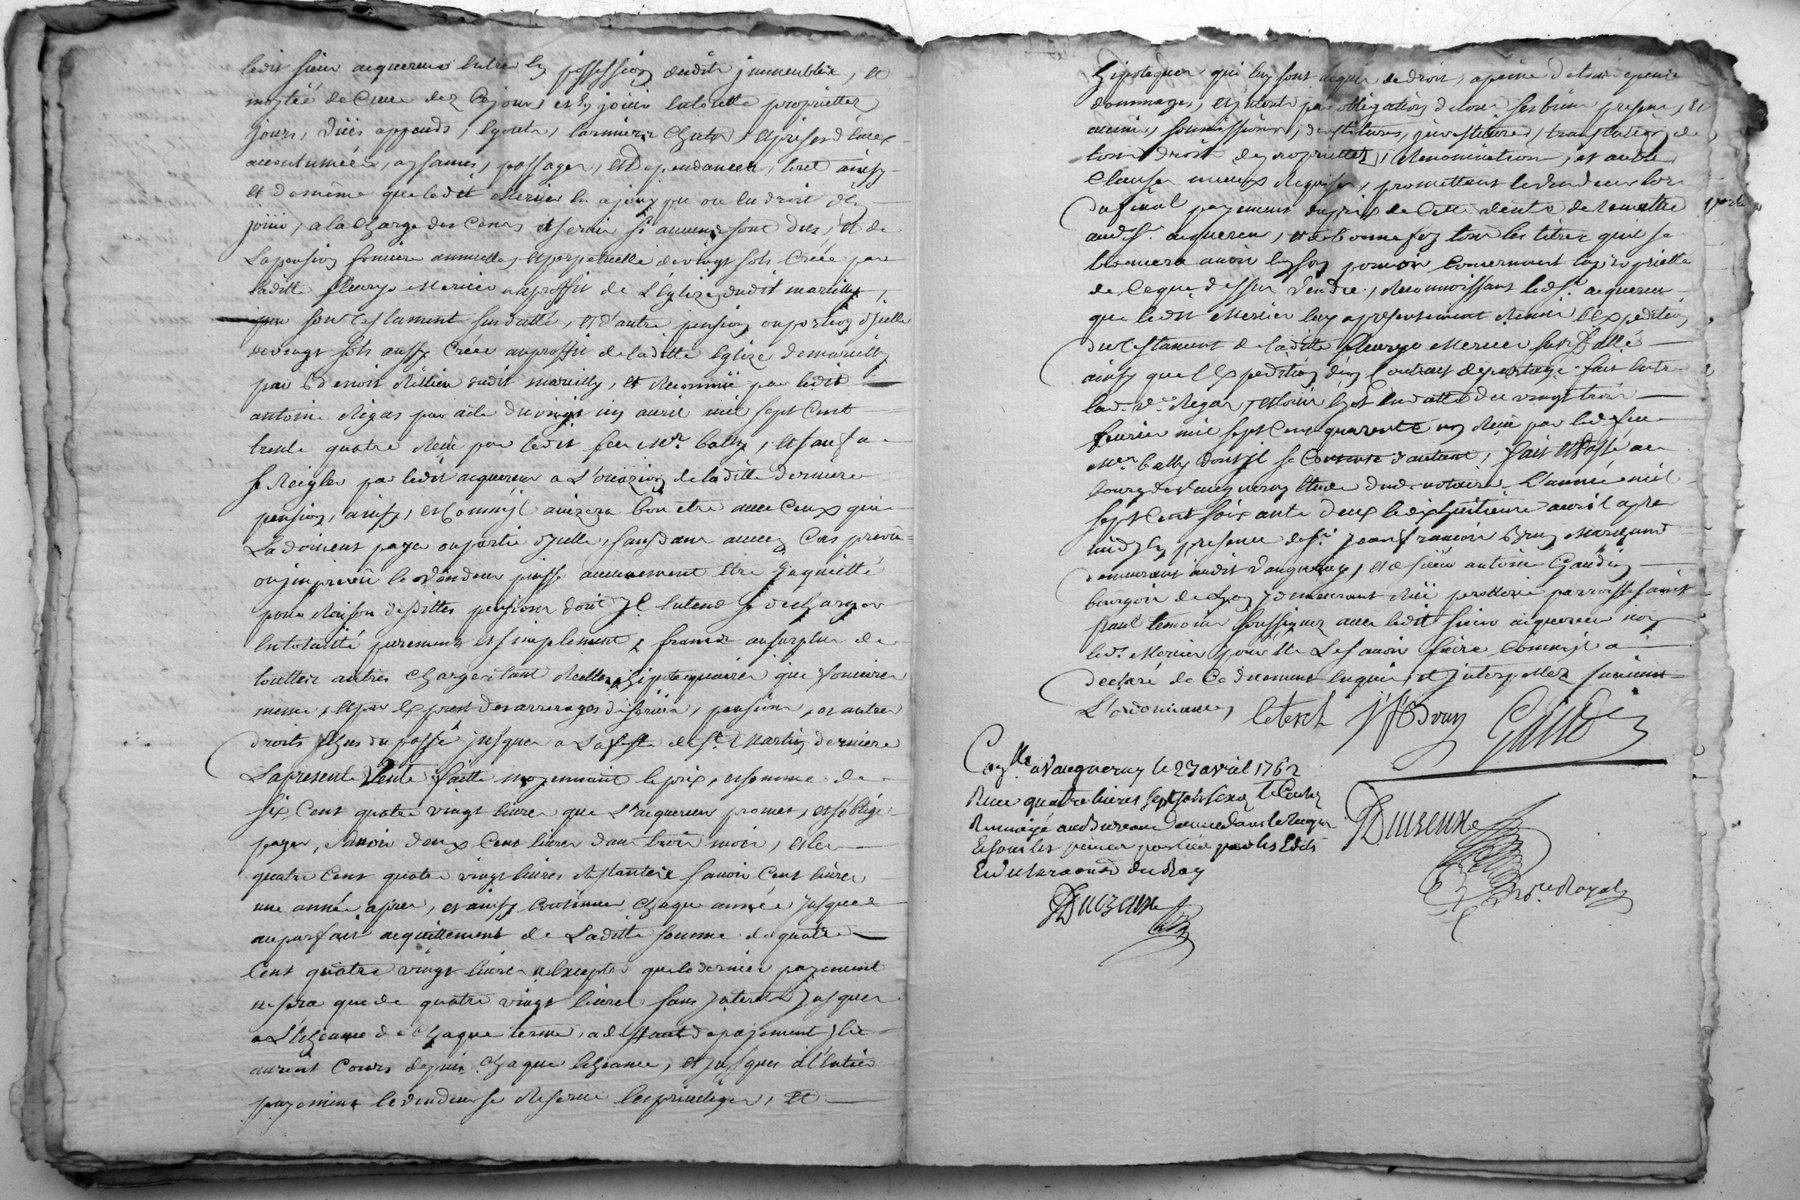 ledit sieur acquereur entre en possession desdits immeubles, et
moytié de cuve dez cejour, et en jouir en toutte proprietez
jours, vües, appends, egouts, larmiers
accoutumées, aysances, passages, et dependances, tout ainsy
et de meme que ledit Mercier en a jouy pu ou en droit d'en
jouir, a la charge des cens et servis si aucuns sont dus, et de
la pension fonciere annuelle, et perpetuelle de vingt sols créée par
ladite fleurye Mercier au proffit de l'Eglize dudit marcilly,
par son testament susdatté, et d'autre pension ou portion d'jcelle
de vingt sols aussy créée au proffit de ladite Eglize de marcilly
par Benoit dudit marcilly, et reconnüe par ledit
antoine Rigas par acte du vingt un avril mil sept cent
trente quatre Reçu par ledit feu Me. Bally, et sauf a
se Regler par ledit acquereur a l'occasion de ladite derniere
pension, ainsy, et comm'jl avizera bon etre avec ceux qui
la doivent payer ou partie d'jcelle, sans dans aucun cas prevû
ou jmprevû le vendeur puisse aucunement etre jnquietté
pour Raison desdittes pensions dont jl entend se decharger
en totalité purement et simplement, franc au surplus de
touttes autres charges tant Reelles, hipotequaires que foncieres
meme, et par exprest des arrerages de servis, pensions, et autres
droits echus du passé jusques a la feste de St. Martin derniere
La presente Vente faitte moyennant le prix, et somme de
six cent quatre vingt livres que Sr. acquereur promet, et s'oblige
payer, savoir deux cent livres dans trois mois, et les
quatre cent quatre vingt livres restantes savoir cent livres
une année apres, et ainsy continuer chaque année jusques
au parfait acquittement de ladite somme de quatre
cent quatre vingt livres excepté que le dernier payement
ne sera que de quatre vingt livres sans jnterets jusques
a l'echeance de chaque terme, a deffaut de payement jls
auront cours depuis chaque echeance, et jusques a l'entier
payement le vendeur se Reserve les privileges, et
hipoteques qui luy sont acquis de droit, a peine de tous depens
dommages, et jnterets par obligation de tous ses biens presens, et
avenir, soumissions, devetitures, jnvestitures, translation de
tous droits de proprietez, Renonciation, et autres
clauses mieux Requises, promettant le vendeur lors
du final payement du prix de cette vente de Remettre
aud. Sr. acquereur, et de bonne foy tous les titres qu'il se
trouvera avoir en son pouvoir concernant la proprieté
de ce que dessus vendu, Reconnoissant led. Sr. acquereur
que ledit Mercier luy a presentement Remis l'expedition
du testament de ladite fleurye Mercier susdatté
ainsy que l'expedition d'un contrat de partage fait entre
lad. ve. Regas, en datte du vingt trois
fevrier mil sept cent quarante un Reçu par led. feu
Me. Bally dont jl se contente d'autant, fait et Passé au
bourg de Vaugneray etude dud. notaire L'année mil
sept cent soixante deux le dix huitieme avril apres
midy en presence de Sr. Jean francois Brun Marchand
demeurant audit Vaugneray, et de sieur antoine Gaudin
bourgeois de Lyon y demeurant Rüe paroisse saint
paul temoins soussignez avec ledit sieur acquereur non
led. Mercier pour ne le savoir faire comm'jl a
declaré de ce duement enquis, et jnterpellez suivant
L'ordonnance,
J F Brun Gaudin
Con.lle a Vaugneray le 23 avril 1762
Recu quatre livres sept sols six
Renvoyé au Bureau
et sous les peines portées par les Edits
et declarations du Roy